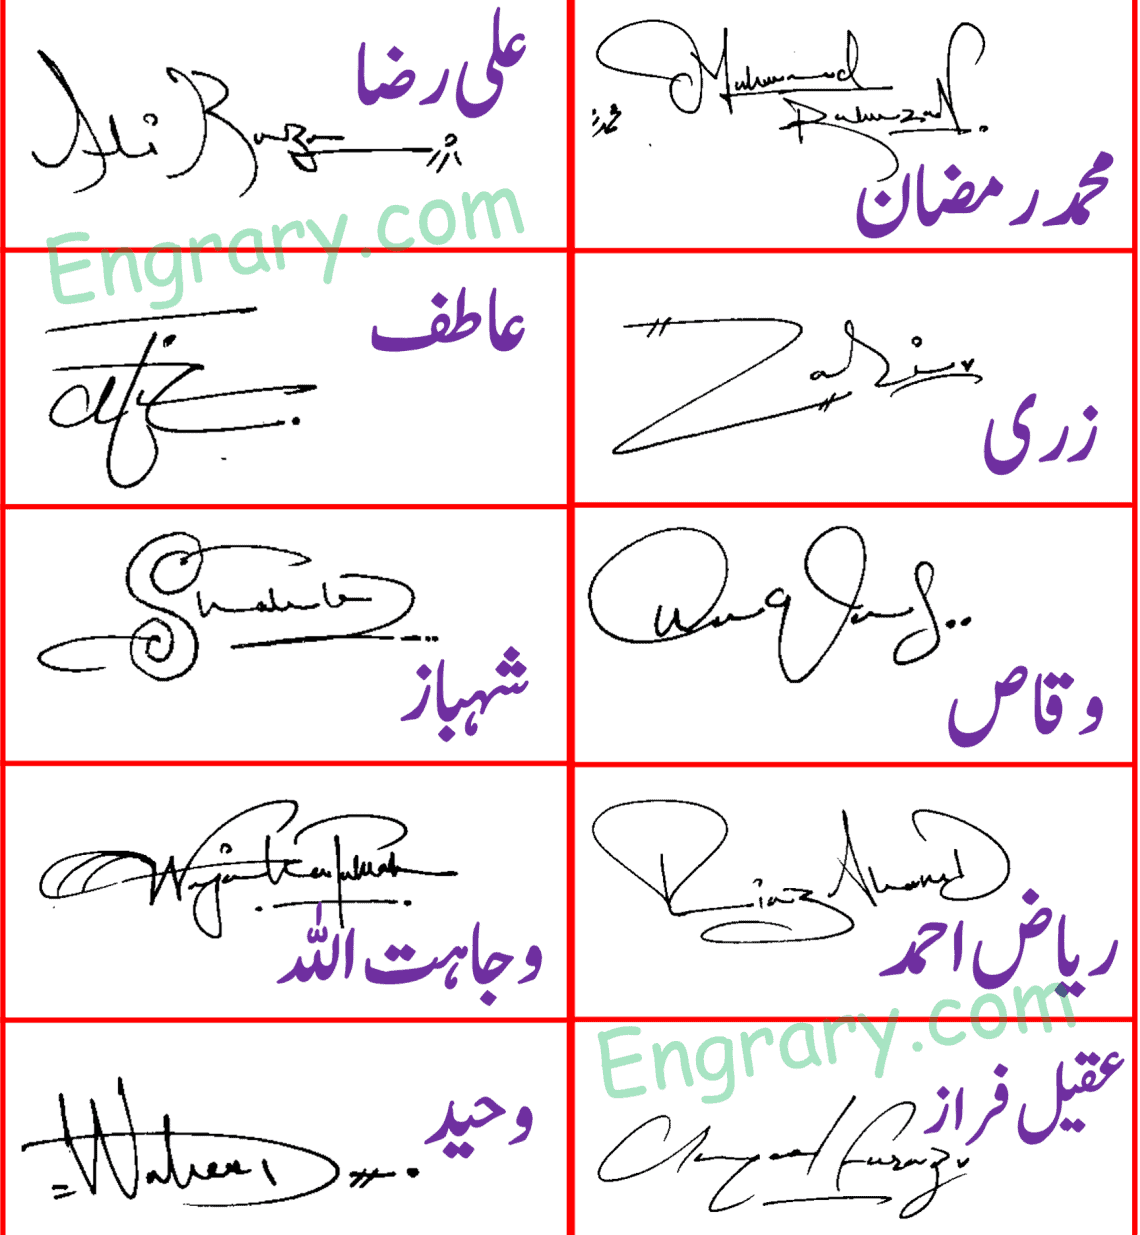 علی رضا
Ali Raza
Muhammad
Ramzan
محمد رمضان
Engrary.com
عاطف
Atif
زری
Shahbaz
شہباز
Waqas
وقاص
Wajahat Ullah
وجاہت اللہ
Riaz Ahmed
ریاض احمد
Engrary.com
Waheed
وحید
عقیل فراز
Faraz